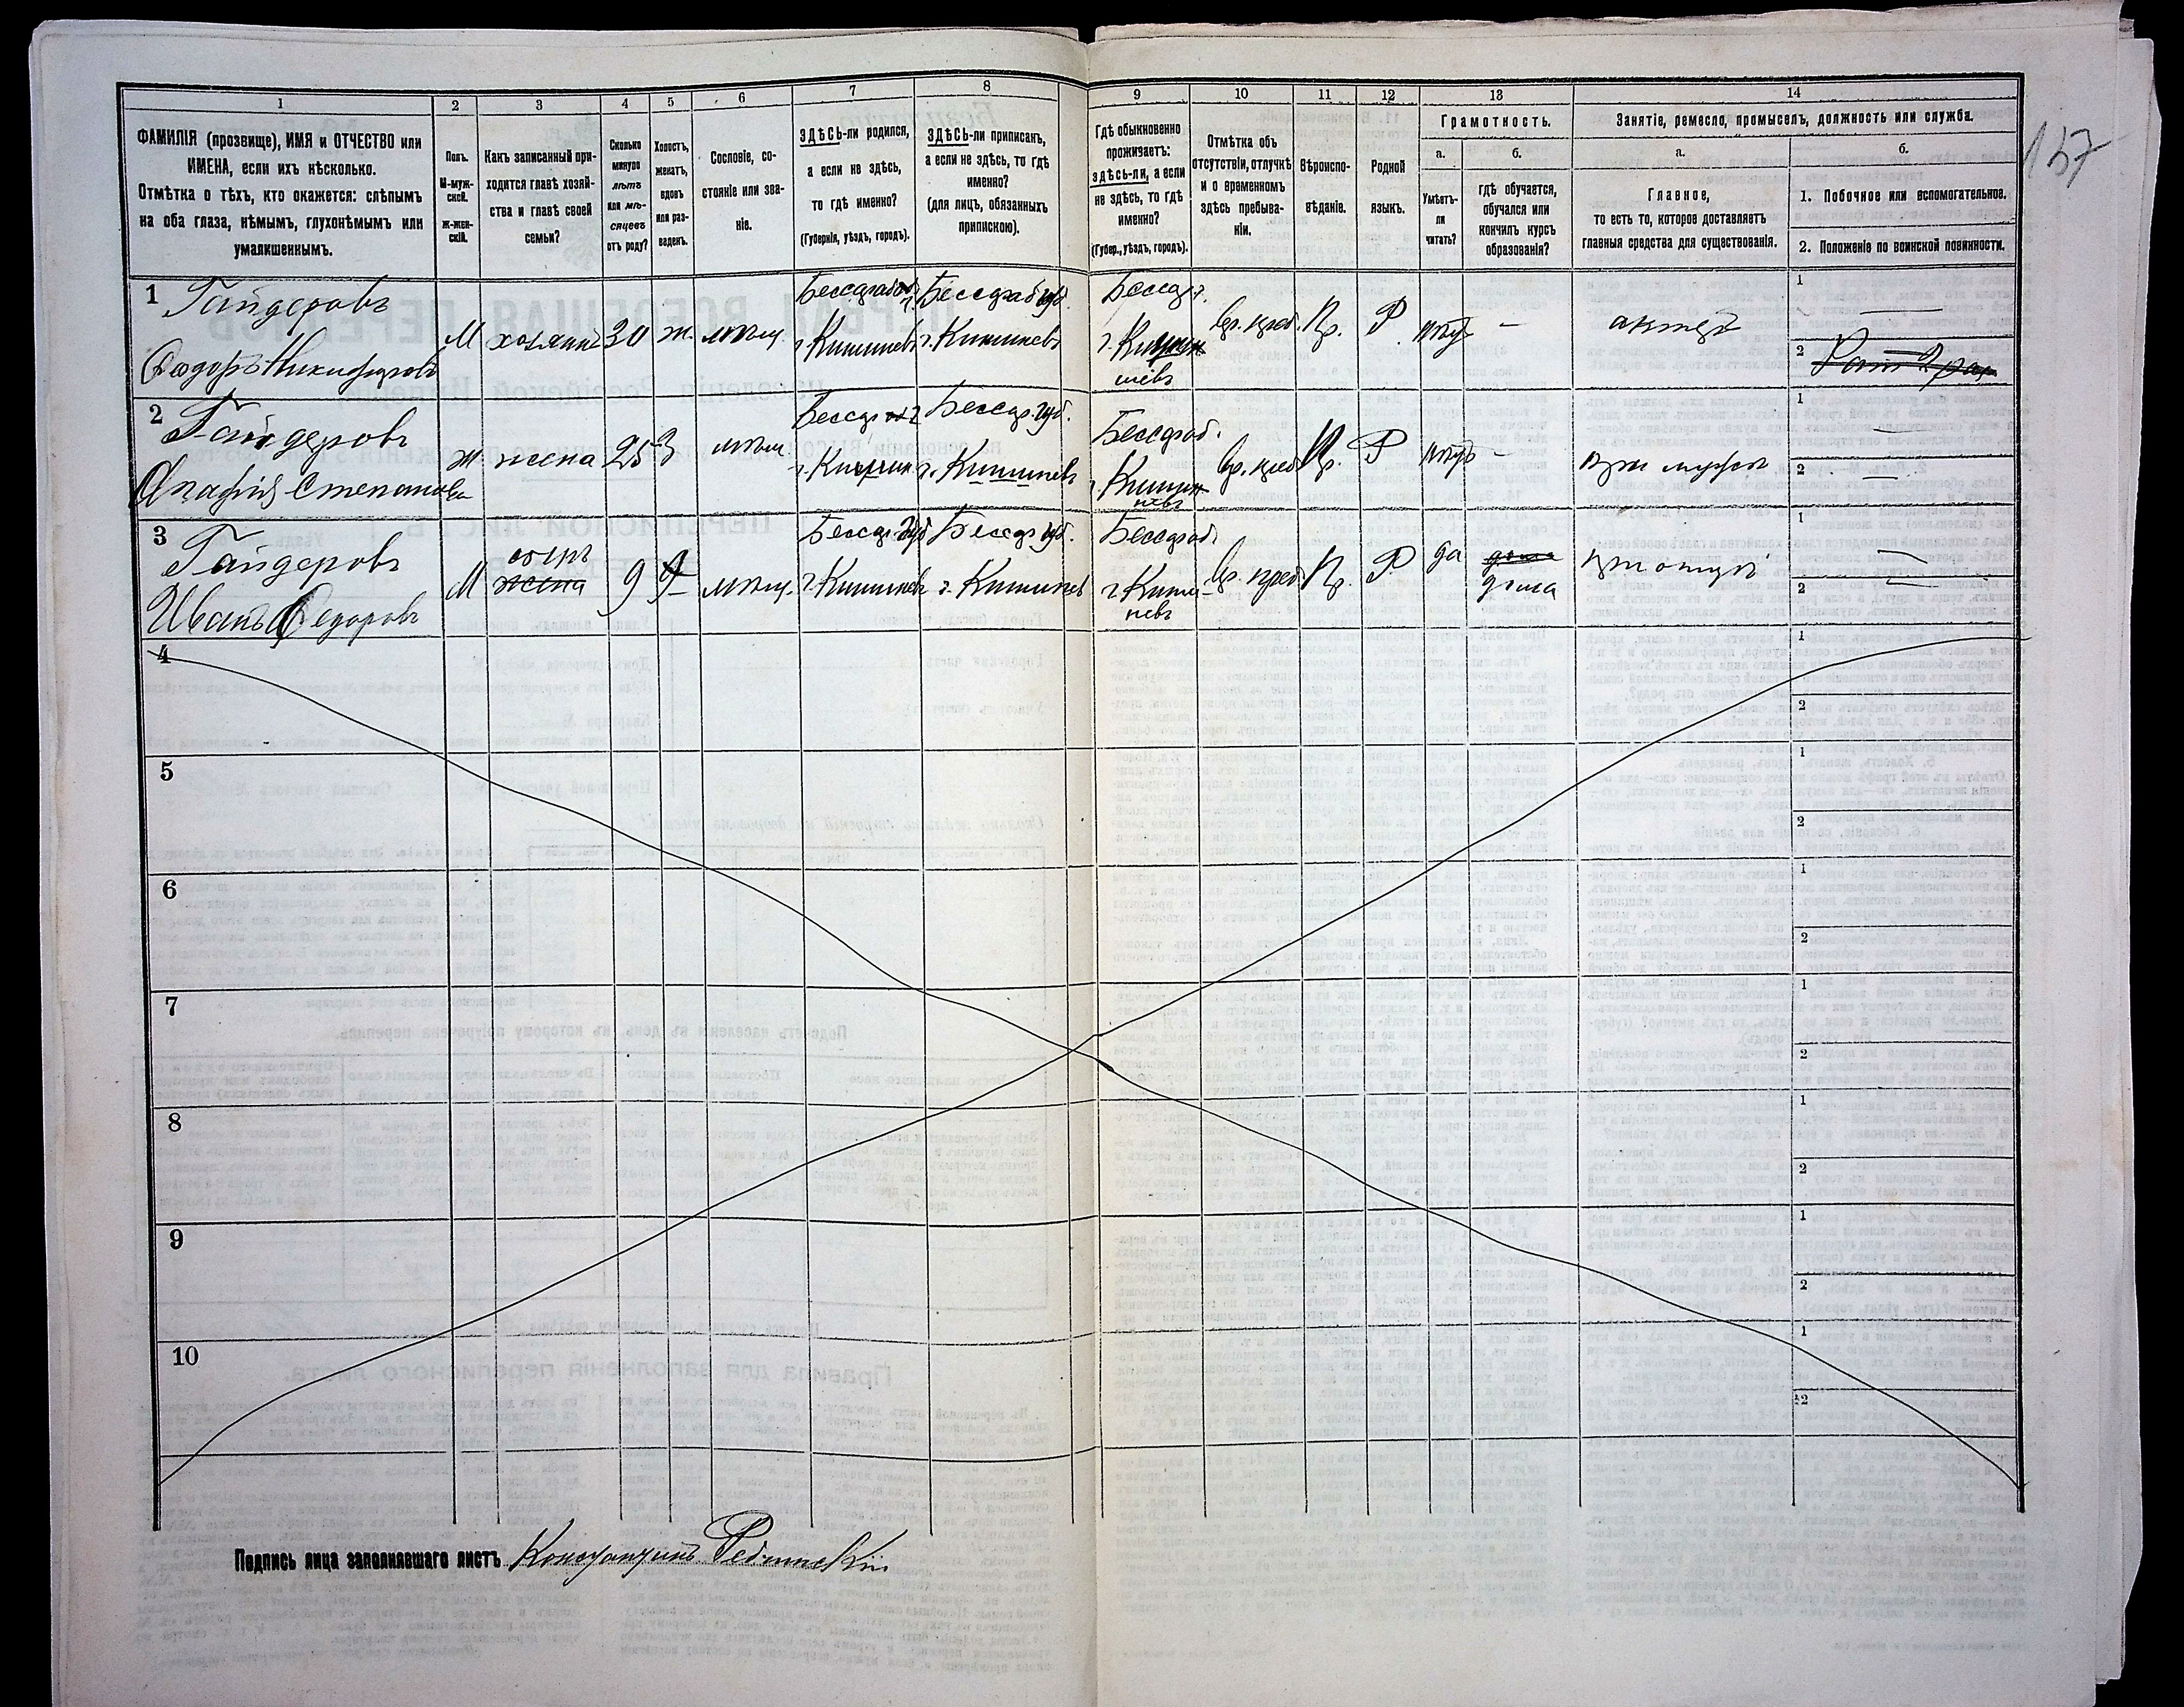 157
1 2 3 4 5 6 7 8 9 10 11 12 13 14
ФАМИЛІЯ (прозвище), ИМЯ и ОТЧЕСТВО или
ИМЕНА, если ихъ нѣсколько.
Отмѣтка о тѣхъ, кто окажется: слѣпымъ
на оба глаза, нѣмымъ, глухонѣмымъ или
умалишеннымъ.
Полъ.
М-муж-
ской.
Ж-жен-
скій.
Какъ записанный при-
ходится главѣ хозяй-
ства и главѣ своей
семьи?
Сколько
минуло
лѣтъ
или мѣ-
сяцевъ
отъ роду?
Холостъ,
женатъ,
вдовъ
или раз-
веденъ.
Сословіе, со-
стояніе или зва-
ніе.
ЗДѢСЬ-ли родился,
а если не здѣсь,
то гдѣ именно?
(Губернія, уѣздъ, городъ).
ЗДѢСЬ-ли приписанъ,
а если не здѣсь, то гдѣ
именно?
(для лицъ, обязанныхъ
припискою).
Гдѣ обыкновенно
проживаетъ:
здѣсь-ли, а если
не здѣсь, то гдѣ
именно?
(Губер., уѣздъ, городъ).
Отмѣтка объ
отсутствіи, отлучкѣ
и о временномъ
здѣсь пребыва-
ніи.
Вѣроиспо-
вѣданіе.
Родной
языкъ.
Грамотность.
а.
Умѣетъ-
ли
читать?
б.
гдѣ обучается,
обучался или
кончилъ курсъ
образованія?
Занятіе, ремесло, промыселъ, должность или служба.
а.
Главное,
то есть то, которое доставляетъ
главныя средства для существованія.
б.
1. Побочное или вспомогательное.
2. Положеніе по воинской повинности.
1
Гайдеровъ
Ѳедоръ Никифоровъ
М
хозяинъ
30
ж.
мѣщ.
г. Кишиневъ
Бессараб губ.
г. Кишиневъ
г. Кишин
невъ
вр. преб.
Пр.
Р
—
актеръ
1
—
2
2
Гайдеровъ
Агафія Степанова
ж
жена
25
з
мѣщ.
г. Кишин
Бессар. губ.
г. Кишиневъ
Бессараб.
г. Кишин
невъ
вр. преб
Пр.
Р
—
при мужѣ
1
—
2
—
3
Гайдеровъ
Иванъ Ѳедоровъ
М
сынъ
жена
9
мѣщ.
Бессар губ
г. Кишинев
Бессар губ.
г. Кишинев
Бессараб
г. Киши-
невъ
вр. преб
Пр.
Р.
да
дома
дома
при отцѣ
1
—
2
—
4
1
2
5
1
2
6
1
2
7
1
2
8
1
2
9
1
2
10
1
2
Подпись лица заполнявшаго листъ Константинъ